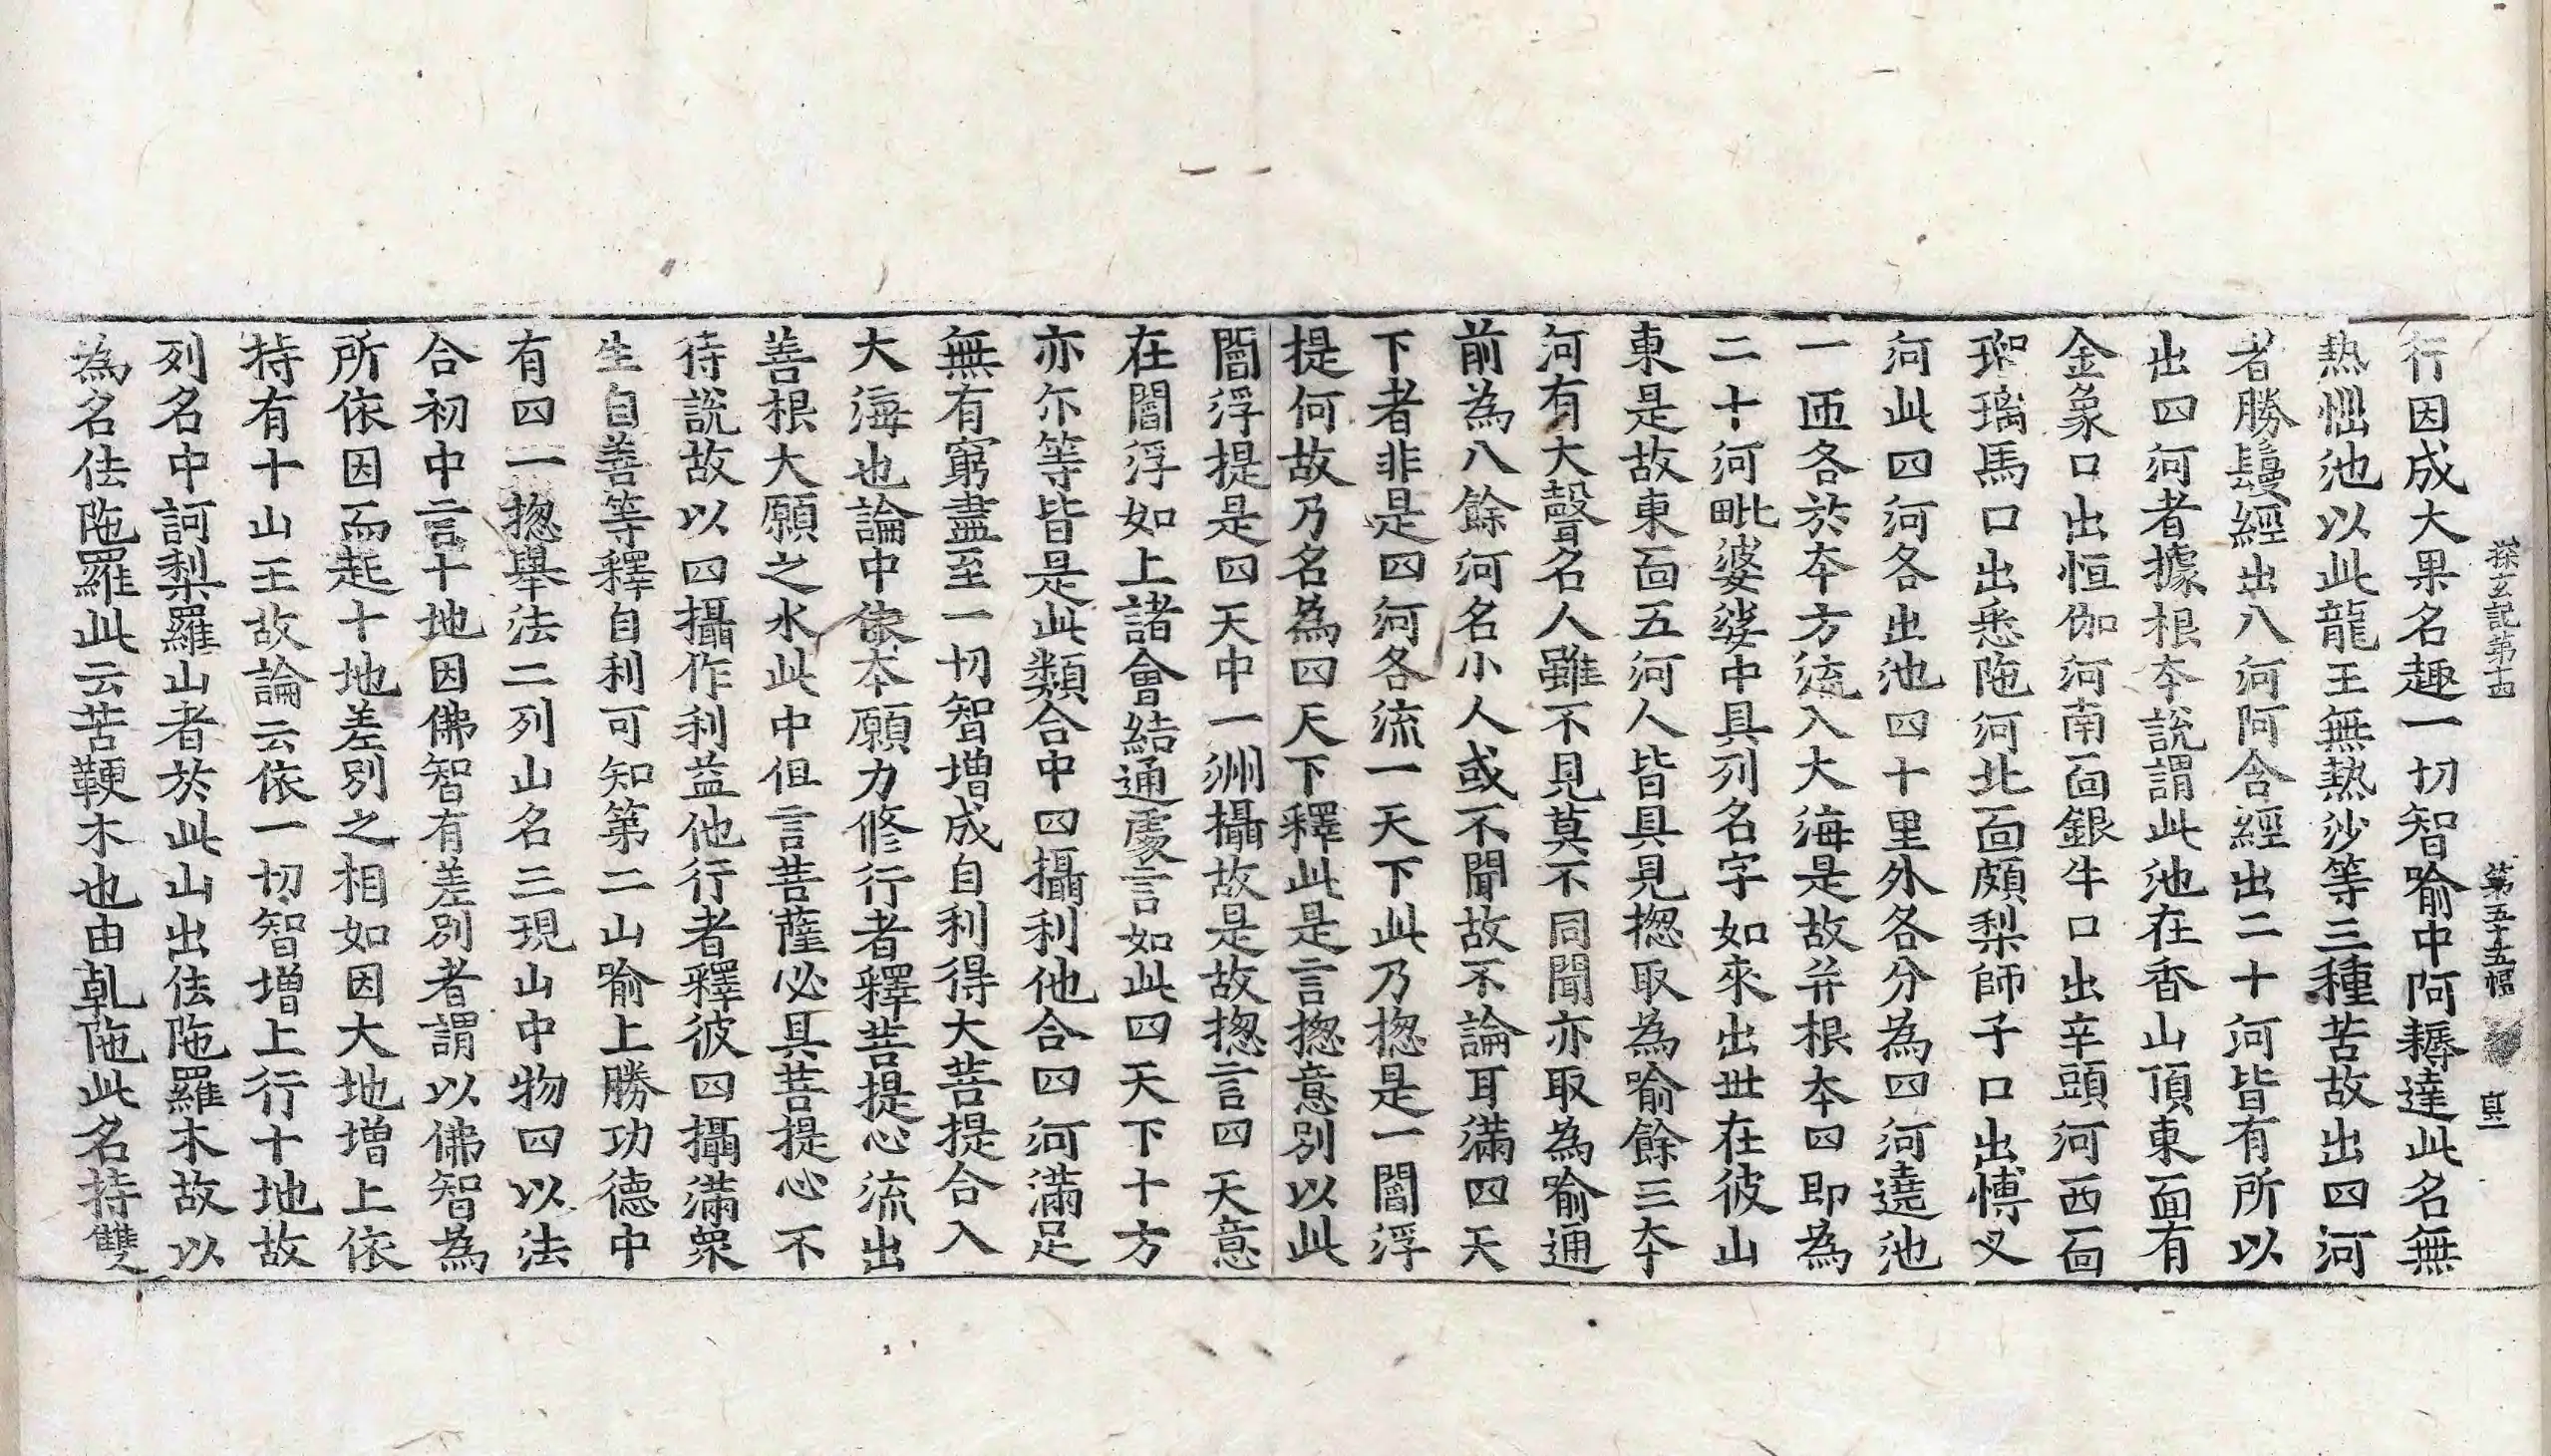 探玄記第十四 第五十五幅 真一
行因成大果名趣一切智喻中阿耨達此名無
熱惱池以此龍王無熱沙等三種苦故出四河
者勝鬘經出八河阿含經出二十河皆有所以
出四河者據根本說謂此池在香山頂東面有
金象口出恒伽河南面銀牛口出辛頭河西面
瑠璃馬口出悉陁河北面頗梨師子口出愽叉
河此四河各出池四十里外各分為四河遶池
一匝各於本方流入大海是故并根本四即為
二十河毗婆娑中具列名字如來出世在彼山
東是故東面五河人皆具見揔取為喻餘三本
河有大聲名人雖不見莫不同聞亦取為喻通
前為八餘河名小人或不聞故不論耳滿四天
下者非是四河各流一天下此乃揔是一閻浮
提何故乃名為四天下釋此是言揔意別以此
閻浮提是四天中一洲攝故是故揔言四天意
在閻浮如上諸會結通處言如此四天下十方
亦尒等皆是此類合中四攝利他合四河滿足
無有窮盡至一切智增成自利得大菩提合入
大海也論中依本願力修行者釋菩提心流出
善根大願之水此中但言菩薩必具菩提心不
待說故以四攝作利益他行者釋彼四攝滿衆
生自善等釋自利可知第二山喻上勝功德中
有四一揔舉法二列山名三現山中物四以法
合初中言十地因佛智有差別者謂以佛智為
所依因而起十地差別之相如因大地增上依
持有十山王故論云依一切智增上行十地故
列名中訶梨羅山者於此山出佉陁羅木故以
為名佉陁羅此云苦鞕木也由乹陁此名持雙